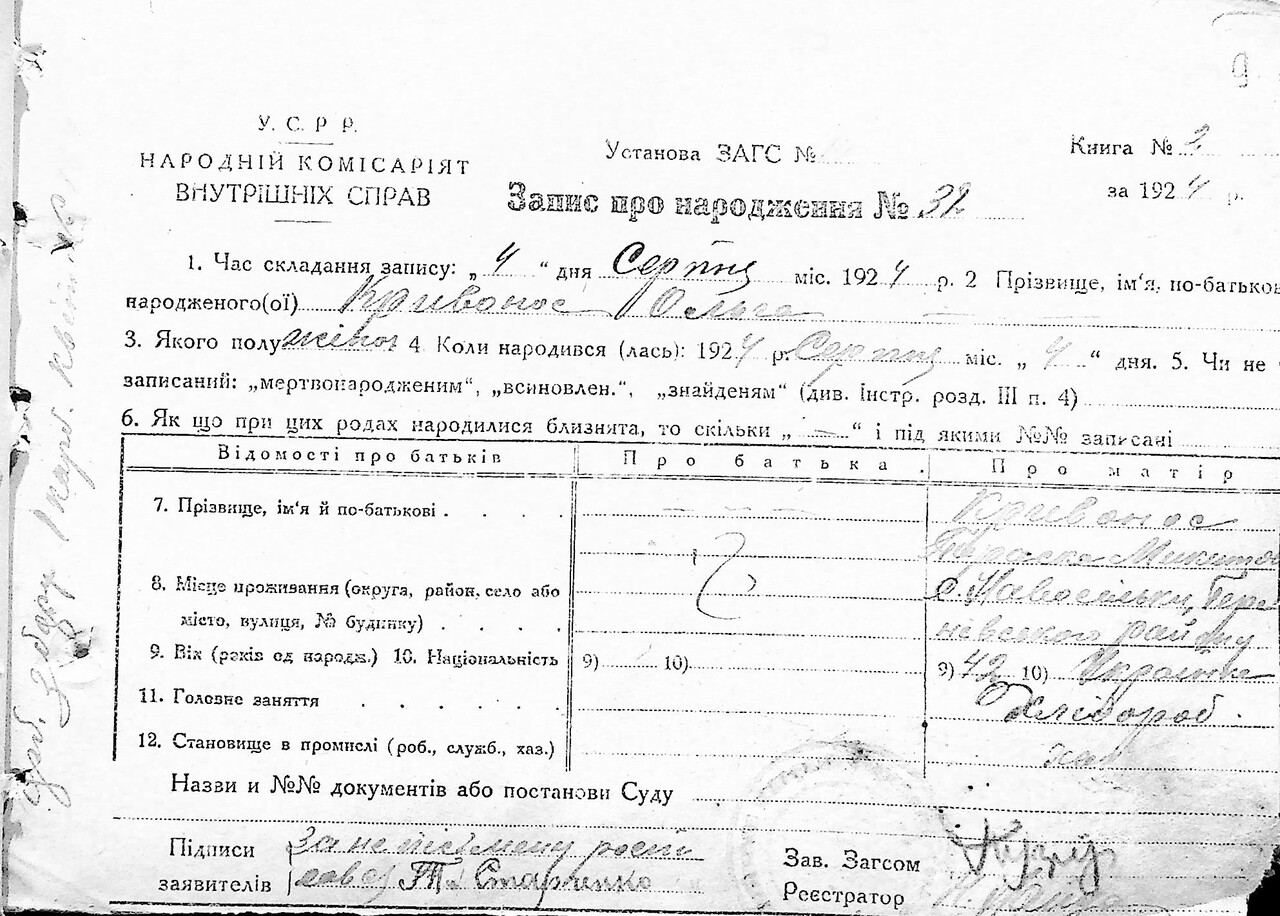 9
У. С. Р Р.
НАРОДНІЙ КОМІСАРІЯТ
ВНУТРІШНІХ СПРАВ
Установа ЗАГС №
Книга № 2
за 1924 р.
Запис про народження № 32
1. Час складання запису: „ 4 “ дня Серпня міс. 1924 р. 2 Прізвище, ім'я, по-батькові
народженого(ої) Кривонос Ольга
3. Якого полу жіноч 4 Коли народився (лась): 1924 р. Серпня міс. „ 4 “ дня. 5. Чи не
записаний: „мертвонародженим“, „всиновлен.“, „знайденям“ (див. Інстр. розд. III п. 4)
6. Як що при цих родах народилися близнята, то скільки „ — “ і під якими №№ записані
Відомості про батьків Про батька. Про матір
7. Прізвище, ім'я й по-батькові . . . . Кривонос
8. Місце проживання (округа, район, село або с. Новосільки,
місто, вулиця, № будинку) . . . . району
9. Вік (років од народж.) 10. Національність 9) 10) 9) 42 10) Украінка
11. Головне заняття . . . . . . Хлібороб
12. Становище в промислі (роб., служб., хаз.)
Назви и №№ документів або постанови Суду
Підписи за неписьмену
заявителів
Зав. Загсом
Реєстратор